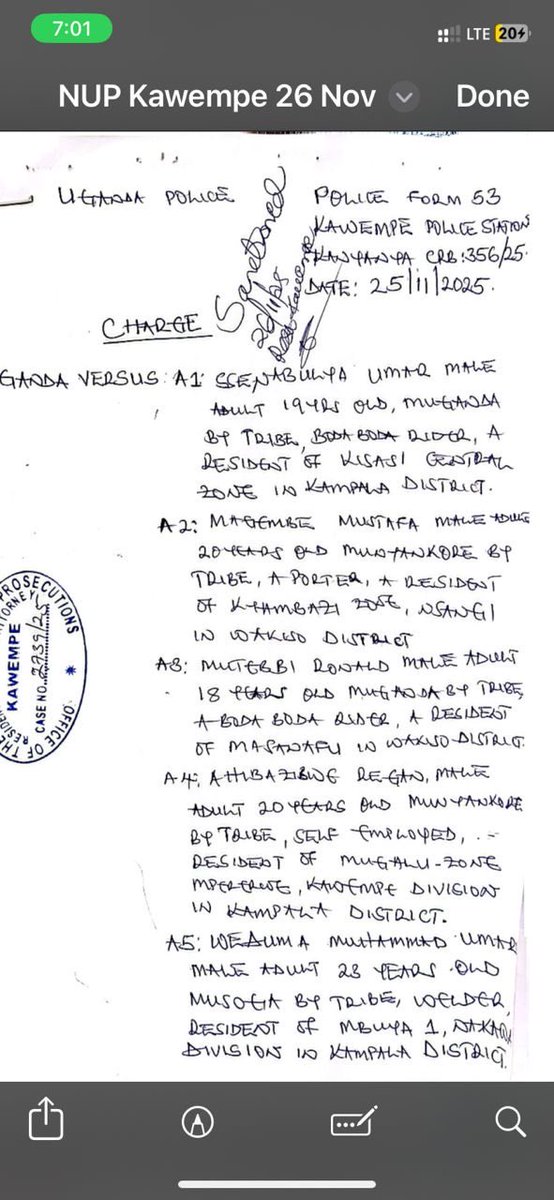 7:01
LTE 20
NUP Kawempe 26 Nov
Done
UGANDA POLICE
POLICE FORM 53
KAWEMPE POLICE STATION
KANYANYA CRB: 356/25.
DATE: 25/11/2025.
Sanctioned
26/11/25
CHARGE
GANDA VERSUS: A1: SSENABULYA UMAR MALE
ADULT 19YRS OLD, MUGANDA
BY TRIBE, BODA BODA RIDER, A
RESIDENT OF KISASI CENTRAL
ZONE IN KAMPALA DISTRICT.
A2: MAGEMBE MUSTAFA MALE ADULT
20 YEARS OLD MUNYANKORE BY
TRIBE, A PORTER, A RESIDENT
OF ZONE, NSANGI
IN WAKISO DISTRICT
A3: MUTEBBI RONALD MALE ADULT
18 YEARS OLD MUGANDA BY TRIBE,
A BODA BODA RIDER, A RESIDENT
OF MASANAFU IN WAKISO DISTRICT.
A4: AHIBAZIBWE REGAN, MALE
ADULT 20 YEARS OLD MUNYANKORE
BY TRIBE, SELF EMPLOYED,
RESIDENT OF MUGALU-ZONE
MPERERWE, KAWEMPE DIVISION
IN KAMPALA DISTRICT.
A5: MUHAMMAD UMAR
MALE ADULT 23 YEARS OLD
MUSOGA BY TRIBE, WELDER,
RESIDENT OF MBUYA 1, NAKAWA
DIVISION IN KAMPALA DISTRICT.
PROSECUTIONS
KAWEMPE
CASE NO. 2739/25
OFFICE OF THE